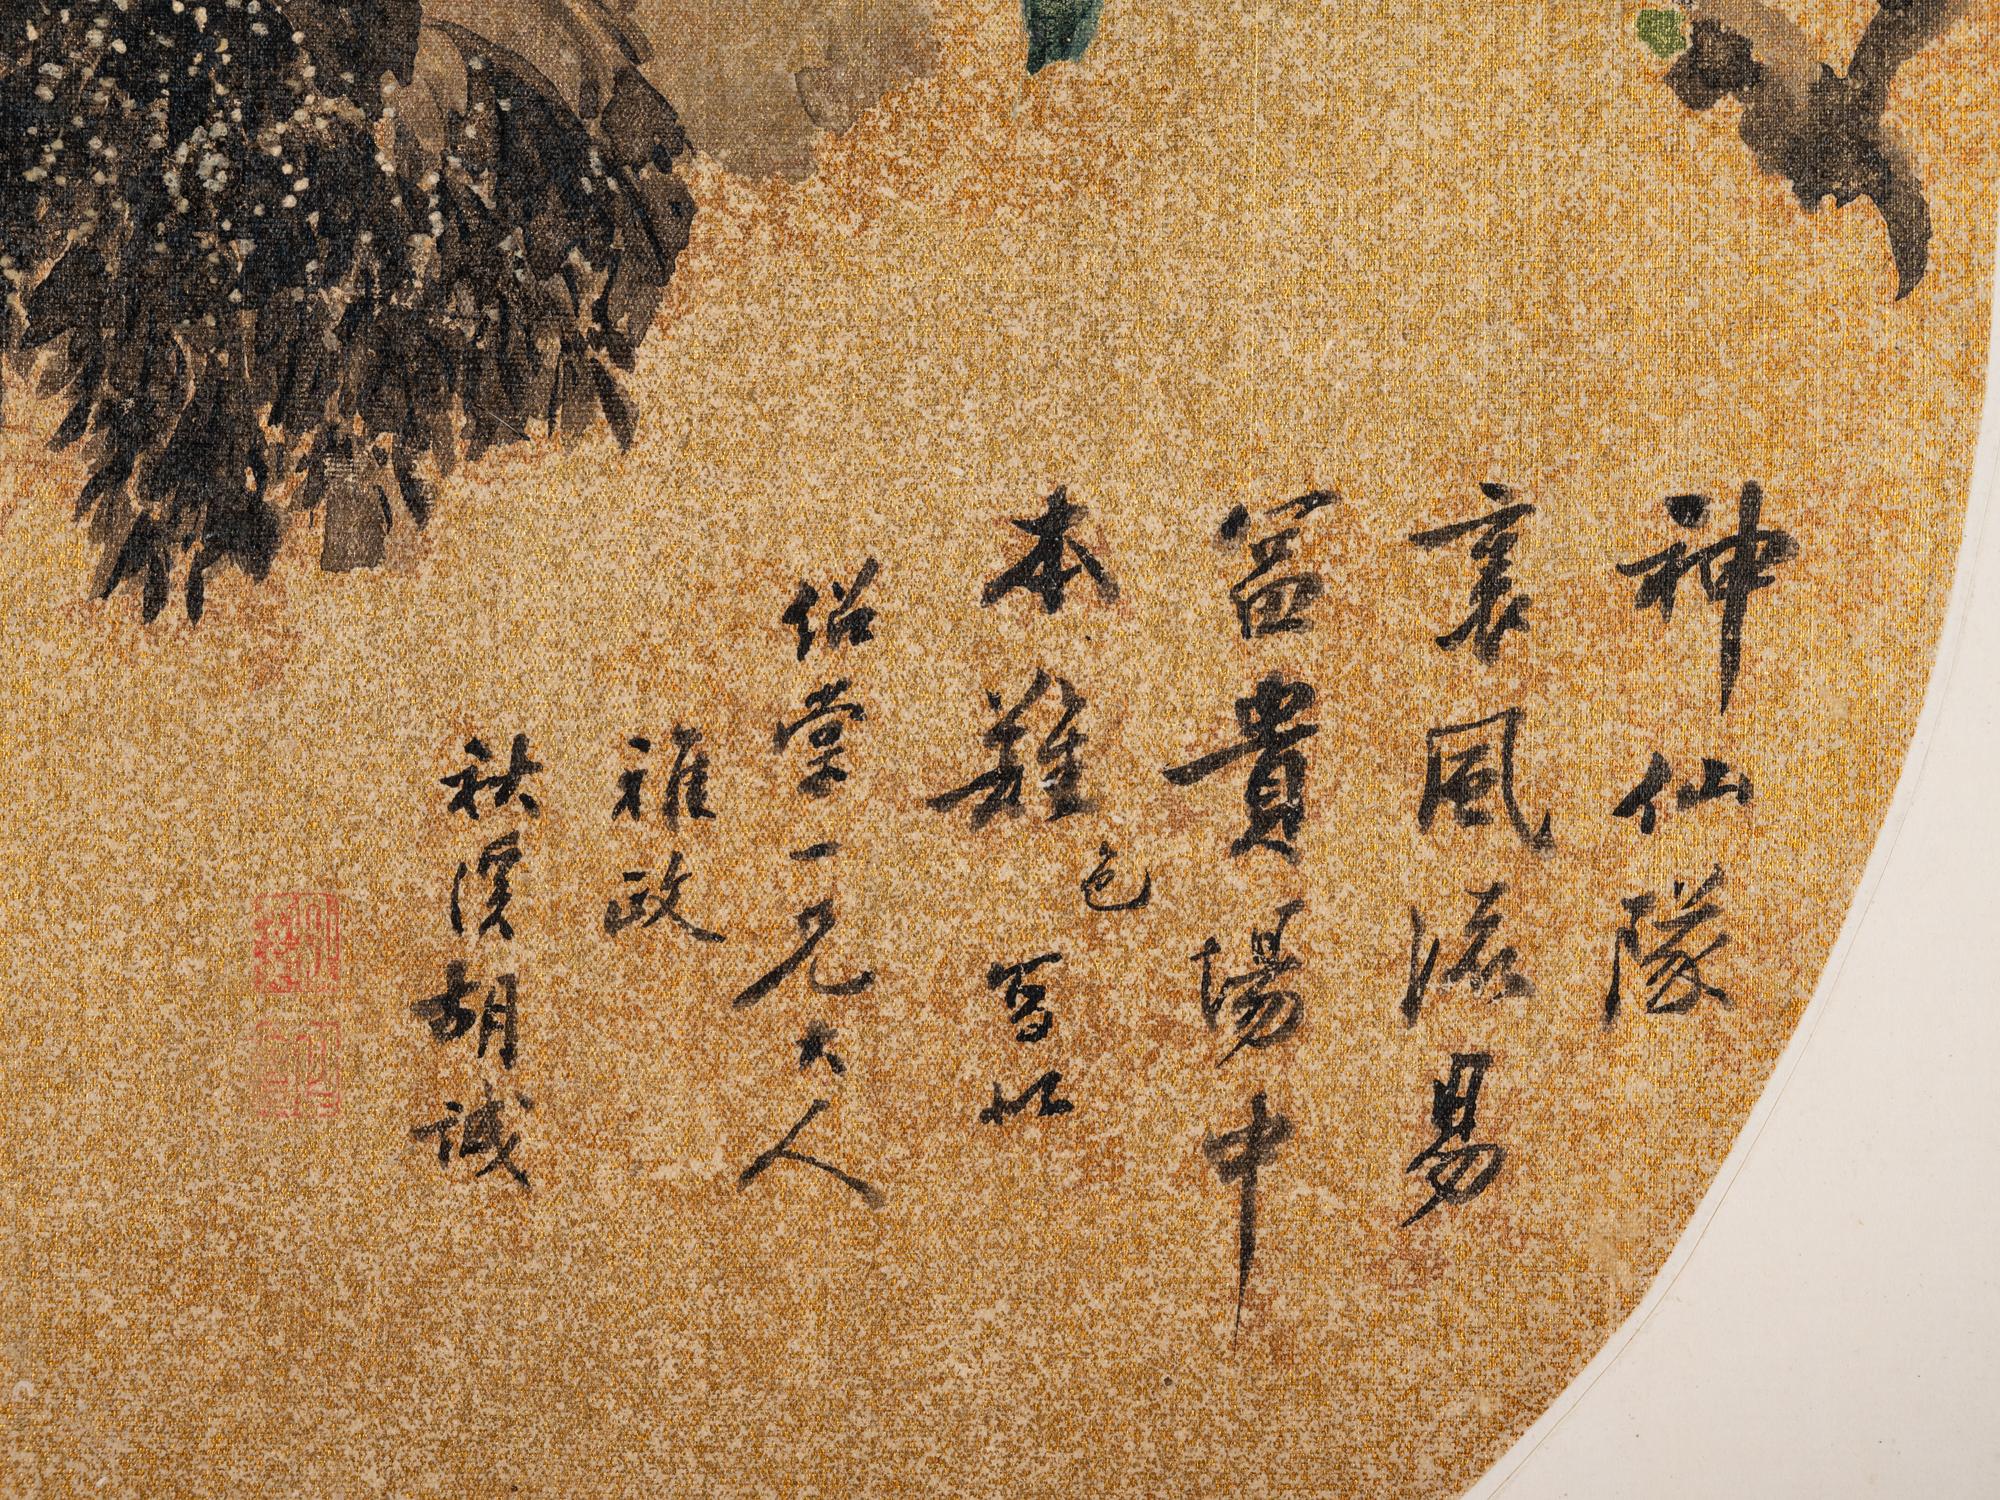 神仙隊
裏風流易
富貴場中
本難色写收
紹堂一兄大人
雅政
秋溪胡誠